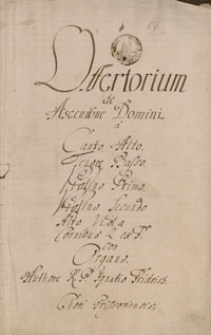 Offertorium
de
Ascensione Domini
à
Canto, Alto.
Tenore Basso.
Violino Primo.
Violino Secundo
Alto Viola
Cornibus 2 ex F.
con
Organo.
Authore R: P: Ignatio Fridrich
Chori